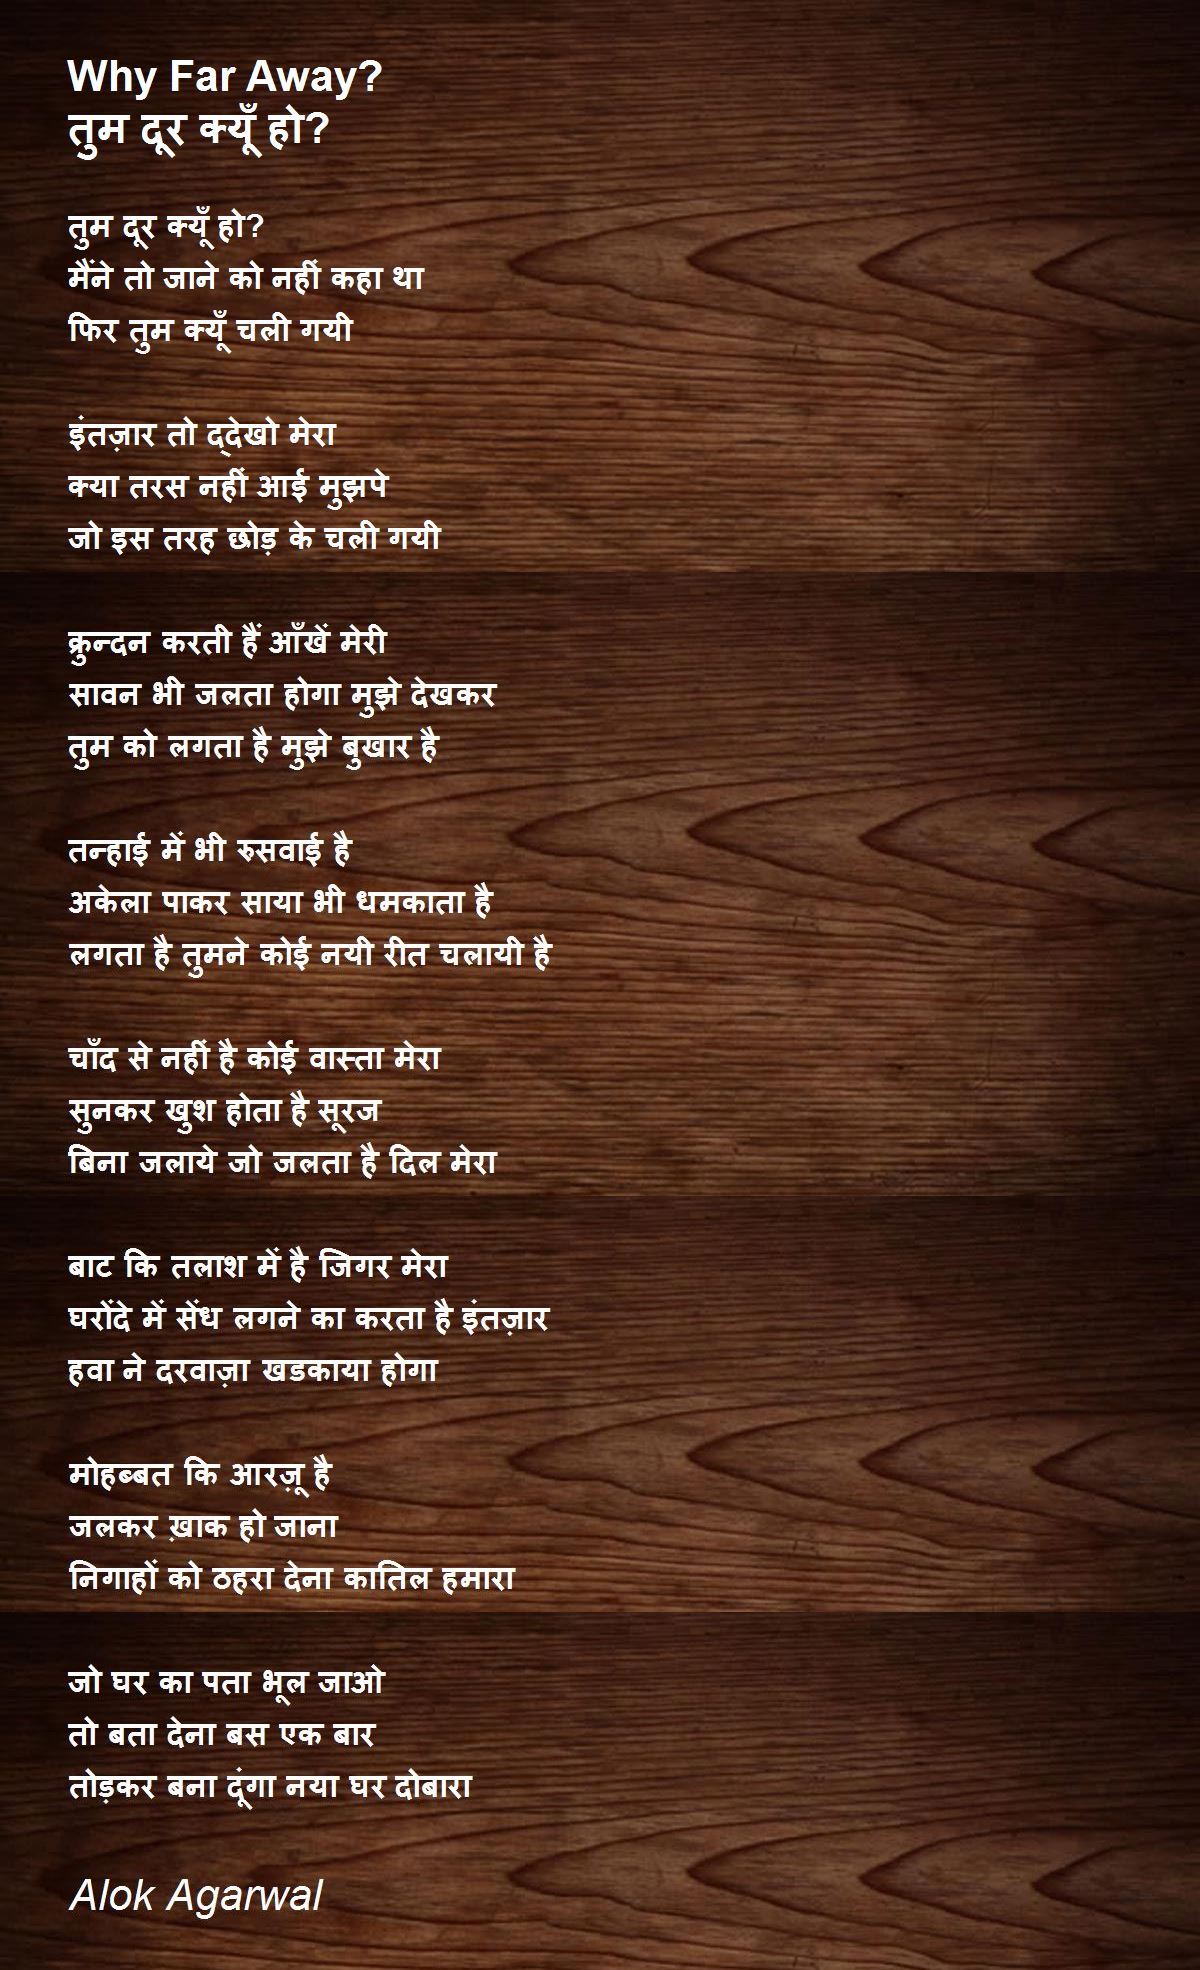 Why Far Away?
तुम दूर क्यूँ हो?
तुम दूर क्यूँ हो?
मैंने तो जाने को नहीं कहा था
फिर तुम क्यूँ चली गयी
इंतज़ार तो द्देखो मेरा
क्या तरस नहीं आई मुझपे
जो इस तरह छोड़ के चली गयी
क्रुन्दन करती हैं आँखें मेरी
सावन भी जलता होगा मुझे देखकर
तुम को लगता है मुझे बुखार है
तन्हाई में भी रुसवाई है
अकेला पाकर साया भी धमकाता है
लगता है तुमने कोई नयी रीत चलायी है
चाँद से नहीं है कोई वास्ता मेरा
सुनकर खुश होता है सूरज
बिना जलाये जो जलता है दिल मेरा
बाट कि तलाश में है जिगर मेरा
घरोंदे में सेंध लगने का करता है इंतज़ार
हवा ने दरवाज़ा खडकाया होगा
मोहब्बत कि आरज़ू है
जलकर ख़ाक हो जाना
निगाहों को ठहरा देना कातिल हमारा
जो घर का पता भूल जाओ
तो बता देना बस एक बार
तोड़कर बना दूंगा नया घर दोबारा
Alok Agarwal